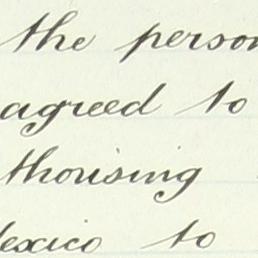 the person
agreed to
thorising
exico to